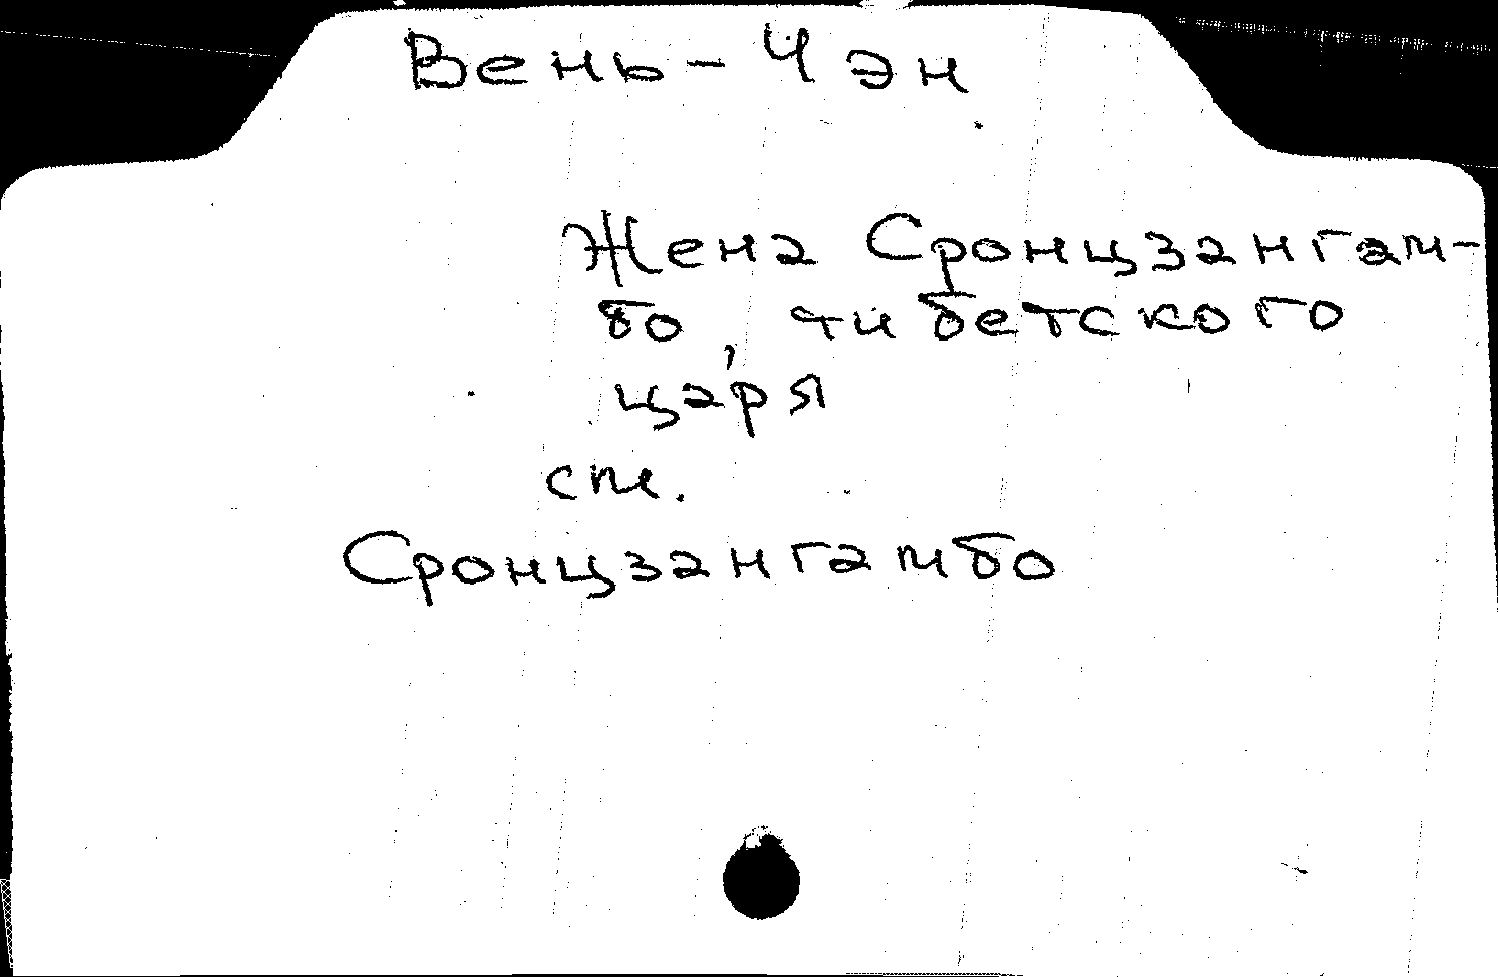 Вень-Чэн
Жена Сронцзангам-
бо, тибетского
царя
см.
Сронцзангамбо